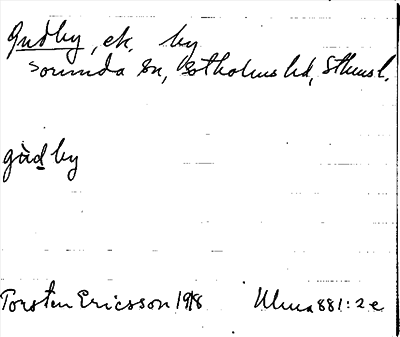 Gudby, ek. by
Sorunda sn, Sotholms hd, Sthmsl.
gùdby
Torsten Ericsson 1918 Ulma 881:2e